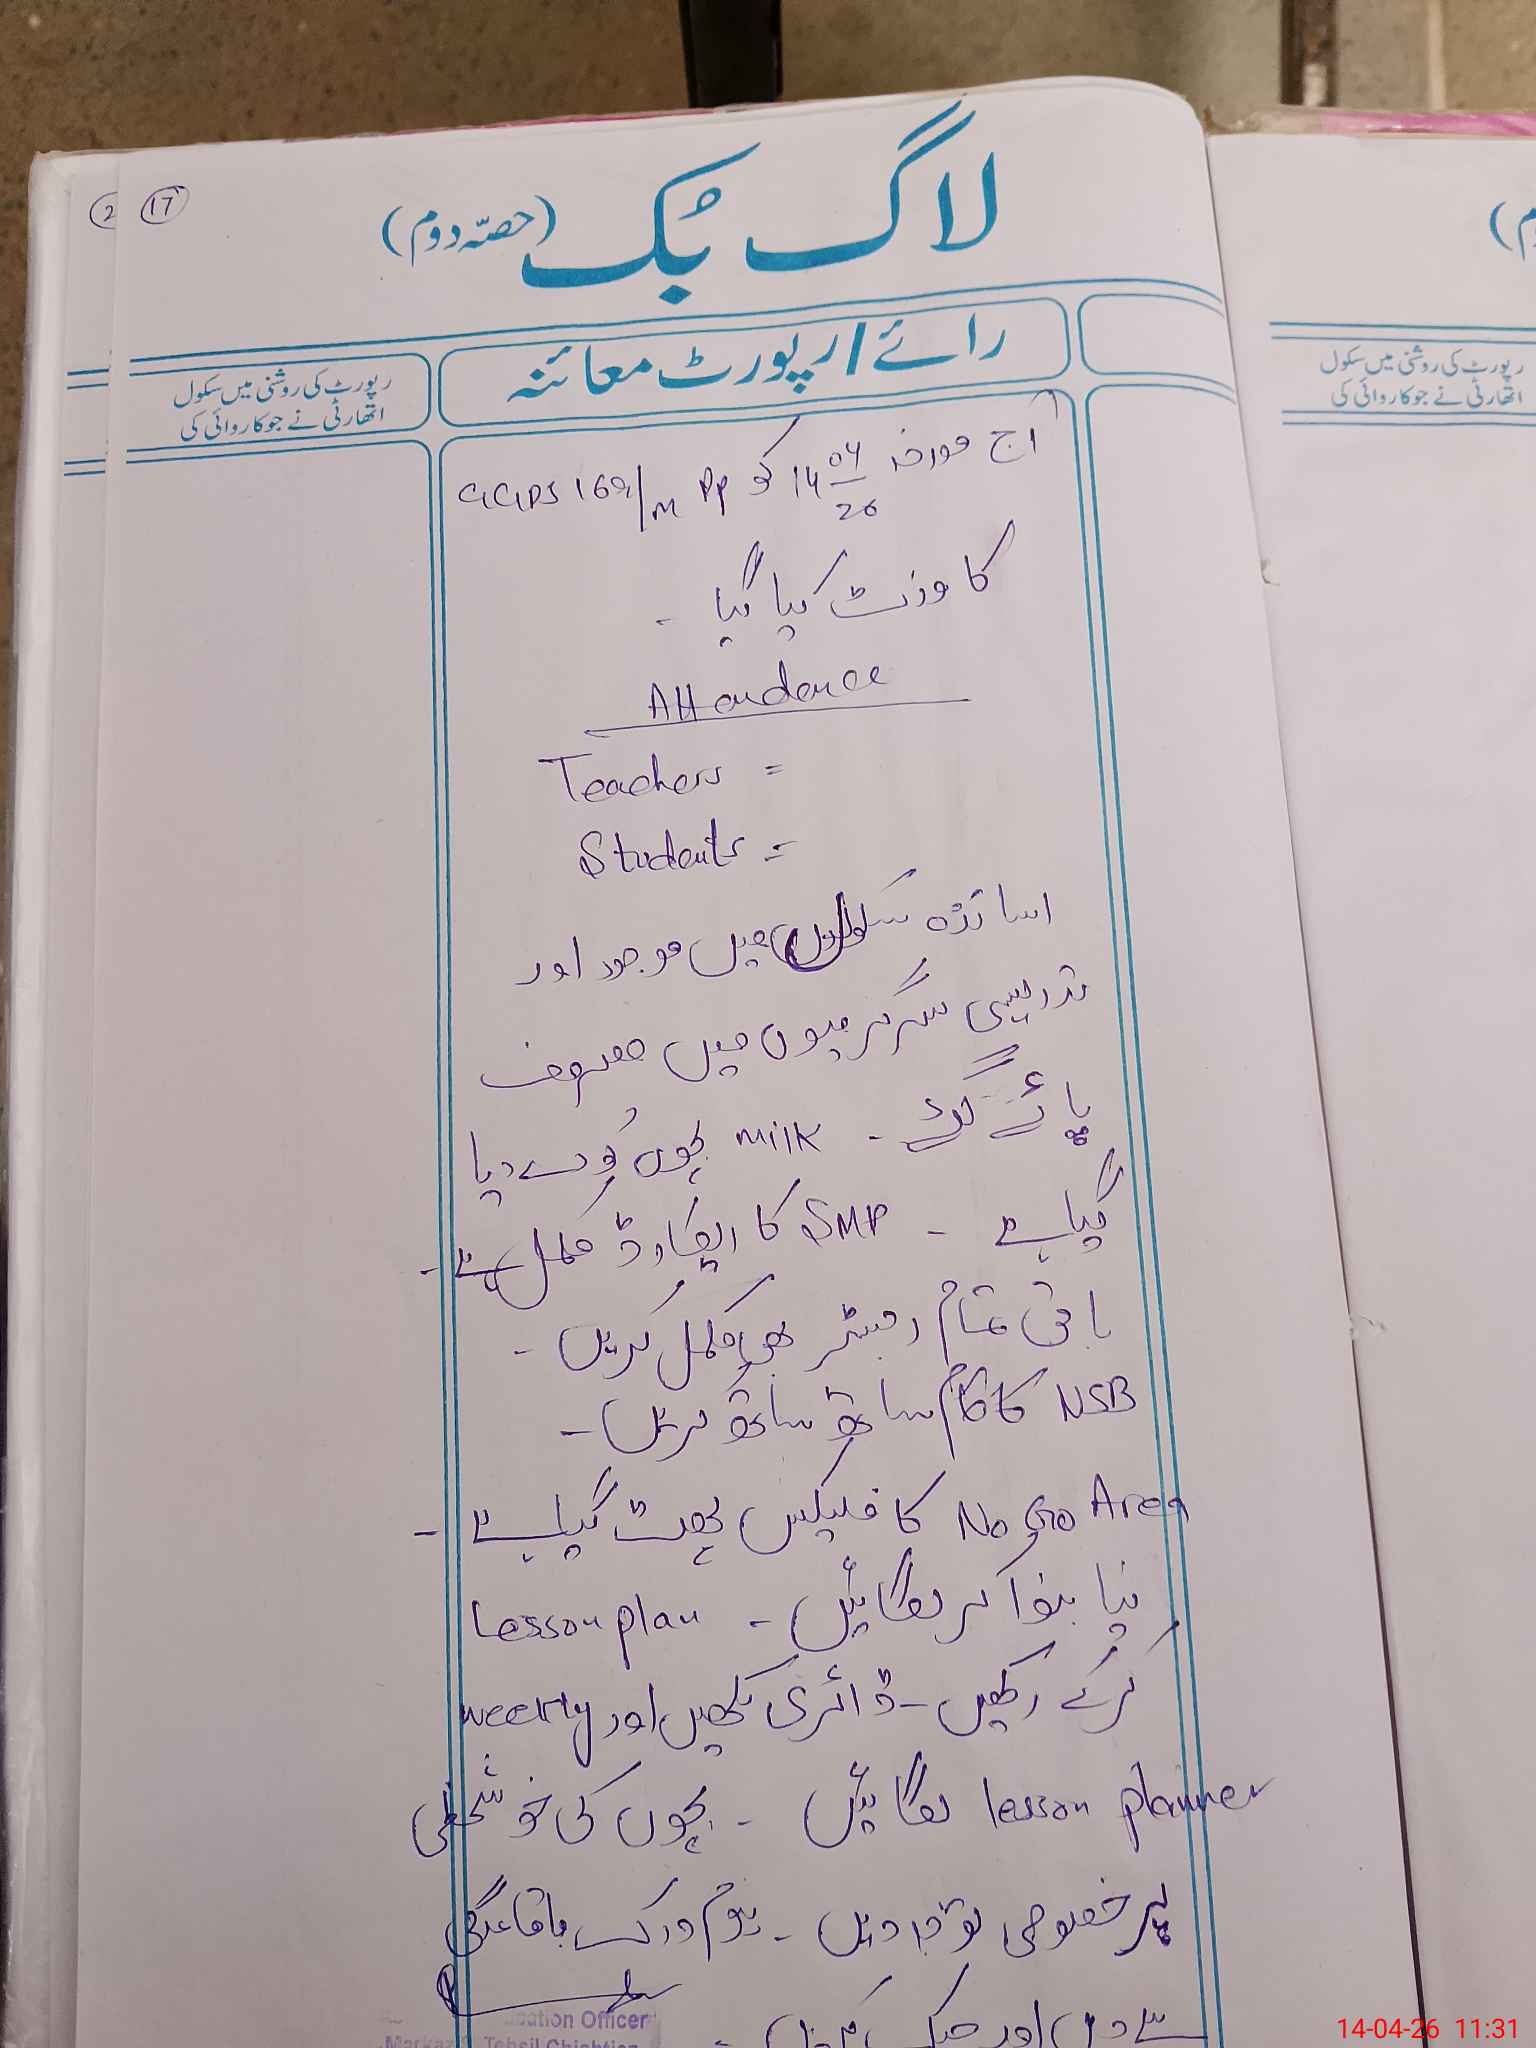 17
2
لاگ بُک (حصّہ دوم)
رائے/رپورٹ معائنہ
رپورٹ کی روشنی میں سکول
اتھارٹی نے جو کاروائی کی
رپورٹ کی روشنی میں سکول
اتھارٹی نے جو کاروائی کی
آج مورخہ 14 04/26 کو GGPS 169/M
کا وزٹ کیا گیا ۔
Attendance
Teachers =
Students =
اساتذہ میں موجود اور
تدریسی سرگرمیوں میں مصروف
پائے گئے ۔ milk بچوں کو دے دیا
گیا ہے ۔ SMP کا ریکارڈ مکمل ہے ۔
باقی تمام رجسٹر بھی مکمل کریں ۔
NSB کا کام ساتھ ساتھ کریں ۔
No Go Area کا فلیکس پھٹ گیا ہے ۔
نیا بنوا کر لگائیں ۔ Lesson plan
کرکے رکھیں ۔ ڈائری لکھیں اور weekly
lesson planner لگائیں ۔ بچوں کی خوشخطی
پر خصوصی توجہ دیں ۔ ہوم ورک باقاعدگی
سے دیں اور چیک کریں ۔
Officer
Tehsil
14-04-26 11:31